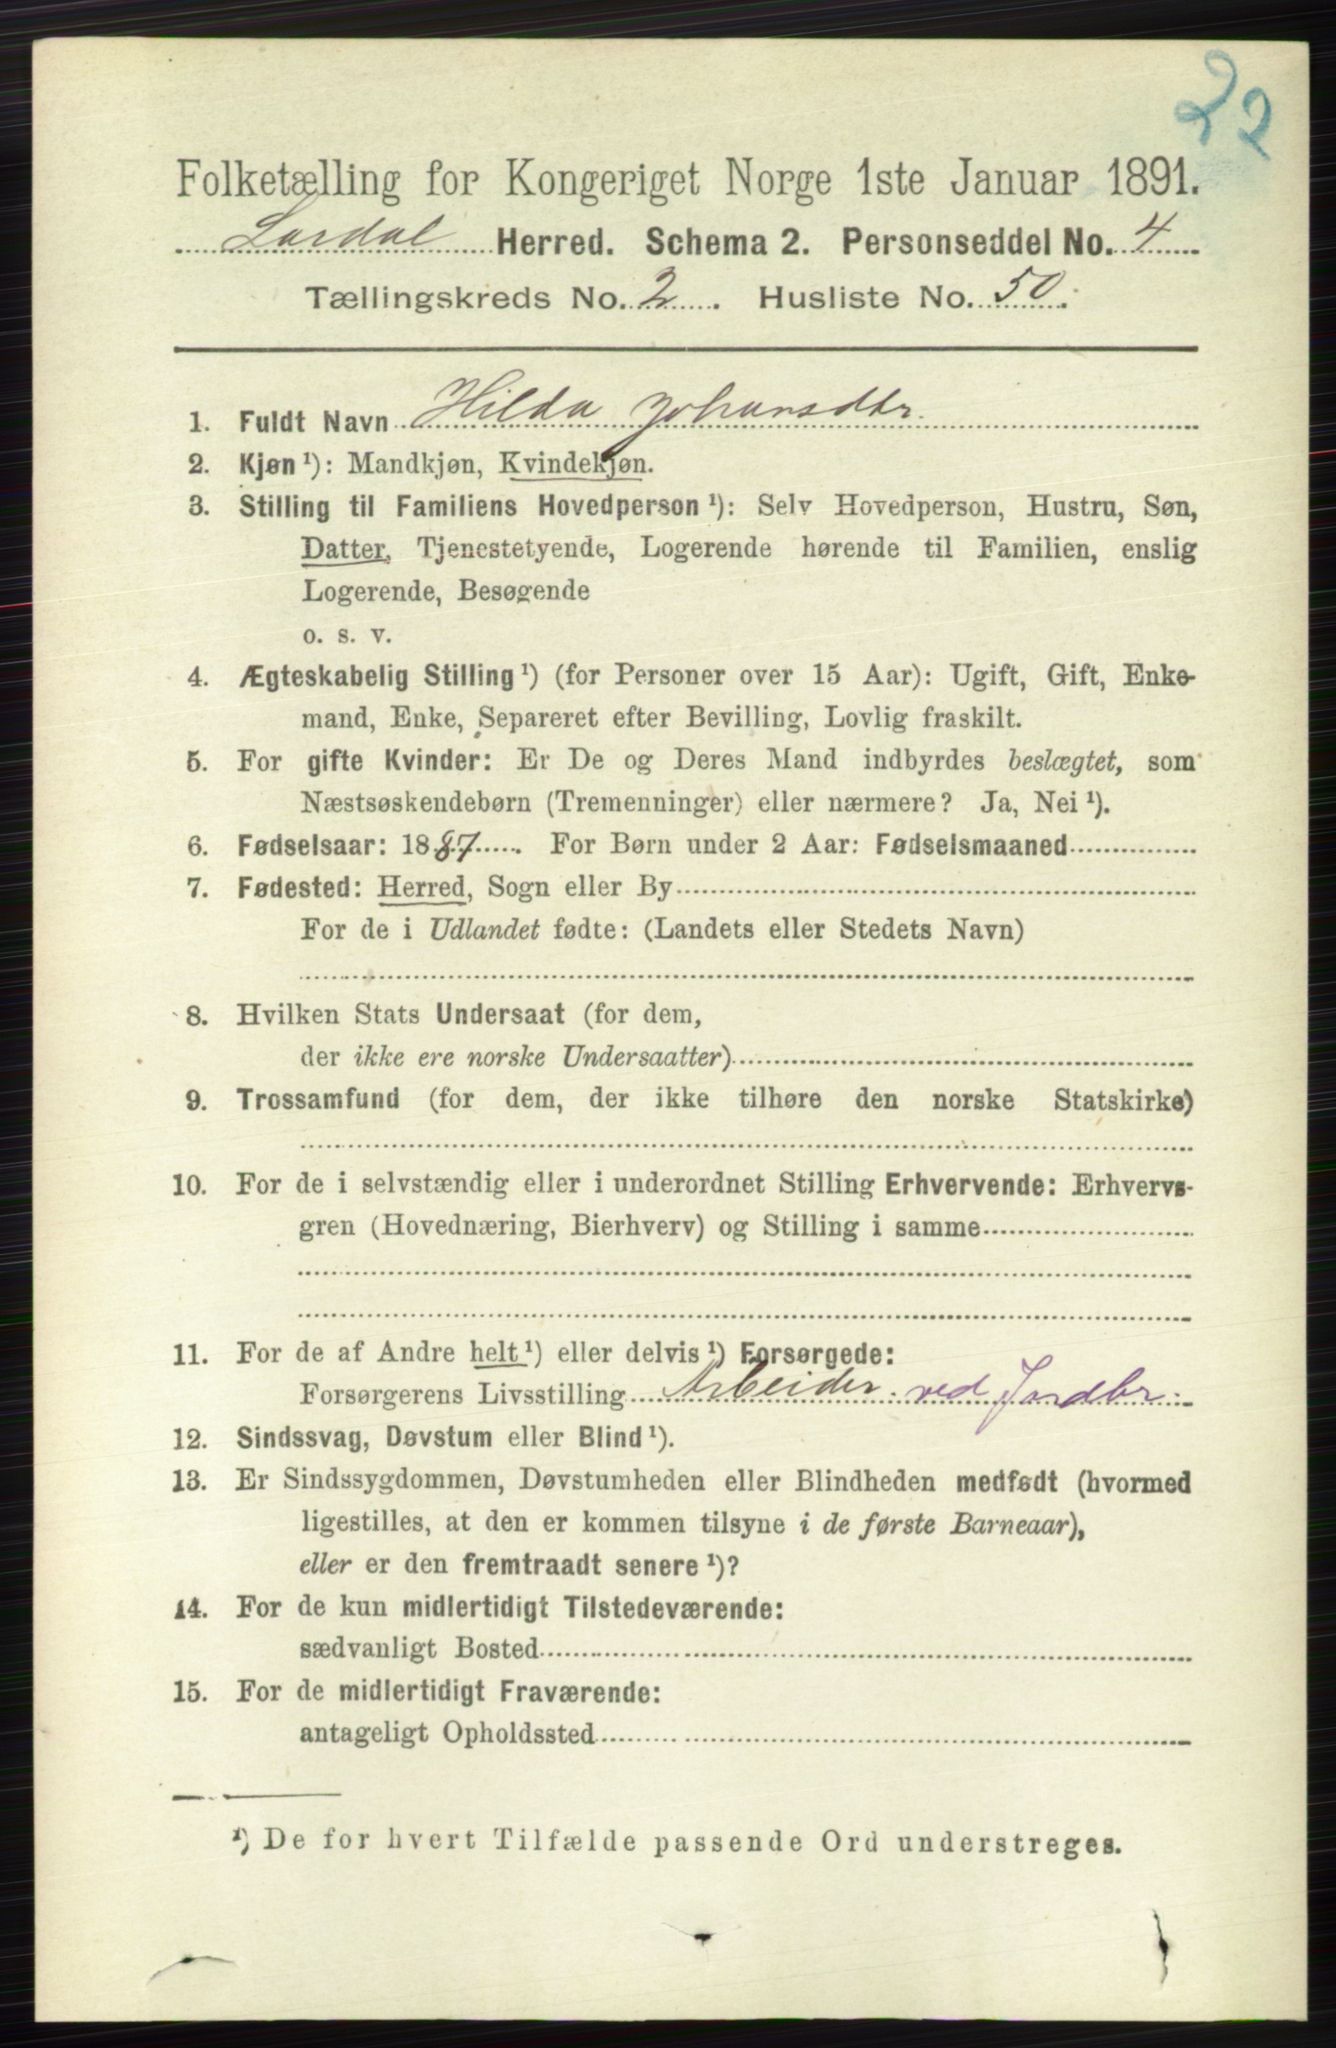 22
Folketælling for Kongeriget Norge 1ste Januar 1891.
Lardal Herred. Schema 2. Personseddel No. 4
Tællingskreds No. 2. Husliste No. 50.
1. Fuldt Navn Hilda Johansdtr.
2. Kjøn ¹): Mandkjøn, Kvindekjøn.
3. Stilling til Familiens Hovedperson ¹): Selv Hovedperson, Hustru, Søn,
Datter, Tjenestetyende, Logerende hørende til Familien, enslig
Logerende, Besøgende
o. s. v.
4. Ægteskabelig Stilling ¹) (for Personer over 15 Aar): Ugift, Gift, Enke-
mand, Enke, Separeret efter Bevilling, Lovlig fraskilt.
5. For gifte Kvinder: Er De og Deres Mand indbyrdes beslægtet, som
Næstsøskendebørn (Tremenninger) eller nærmere? Ja, Nei ¹).
6. Fødselsaar: 1887. For Børn under 2 Aar: Fødselsmaaned
7. Fødested: Herred, Sogn eller By
For de i Udlandet fødte: (Landets eller Stedets Navn)
8. Hvilken Stats Undersaat (for dem,
der ikke ere norske Undersaatter)
9. Trossamfund (for dem, der ikke tilhøre den norske Statskirke)
10. For de i selvstændig eller i underordnet Stilling Erhvervende: Erhvervs-
gren (Hovednæring, Bierhverv) og Stilling i samme
11. For de af Andre helt ¹) eller delvis ¹) Forsørgede:
Forsørgerens Livsstilling Arbeider ved Jordbr.
12. Sindssvag, Døvstum eller Blind ¹).
13. Er Sindssygdommen, Døvstumheden eller Blindheden medfødt (hvormed
ligestilles, at den er kommen tilsyne i de første Barneaar),
eller er den fremtraadt senere ¹)?
14. For de kun midlertidigt Tilstedeværende:
sædvanligt Bosted
15. For de midlertidigt Fraværende:
antageligt Opholdssted
¹) De for hvert Tilfælde passende Ord understreges.